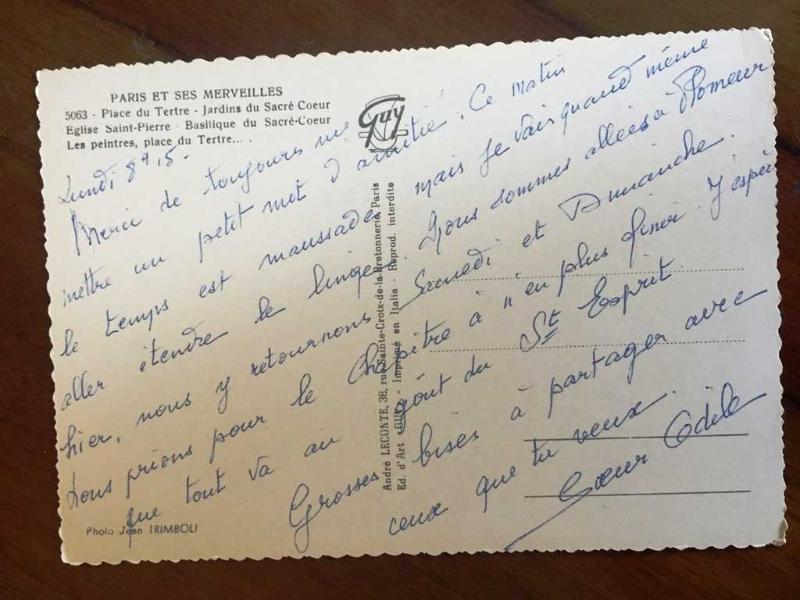 PARIS ET SES MERVEILLES
5063 - Place du Tertre - Jardins du Sacré Coeur
Eglise Saint-Pierre - Basilique du Sacré-Coeur
Les peintres, place du Tertre... .
Guy
Lundi 8 h 15 -
Merci de toujours me
mettre un petit mot d'amitié. Ce matin
le temps est maussade, mais je vais quand même
aller étendre le linge. Nous sommes allées à Plomeur
hier, nous y retournons Samedi et Dimanche.
Nous prions pour le Chapitre à n'en plus finir. J'espère
que tout va au goût du St Esprit.
Grosses bises à partager avec
ceux que tu veux.
Soeur Odile
André LECONTE, 38, rue Sainte-Croix-de-la-Bretonnerie, Paris
Ed. d'Art "GUY" - Imprimé en Italie - Reprod. interdite
Photo Jean TRIMBOLI